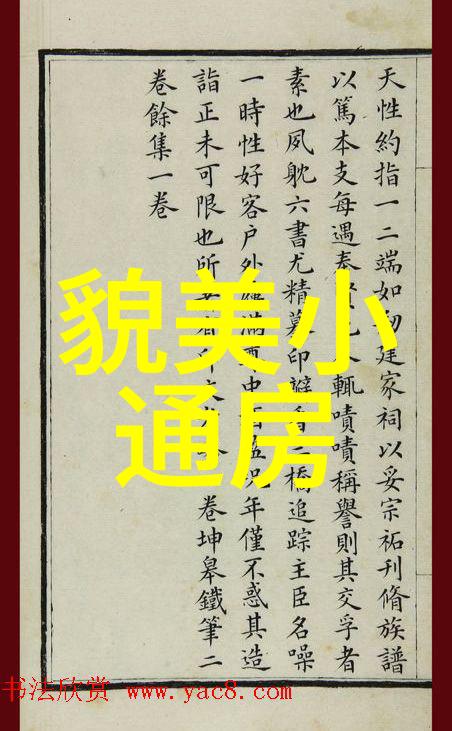 天性約指一二端如建家祠以妥宗祏刊脩族譜
以篤本支每遇輒嘖嘖稱譽則其交孚者
素也夙躭六書尤精摹印橋追踪主臣名噪
一時性好客户外滿中年僅不惑其造
詣正未可限也所卷坤皋鐵筆二
卷餘集一卷
貌美小
通房
书法欣赏 www.yac8.com